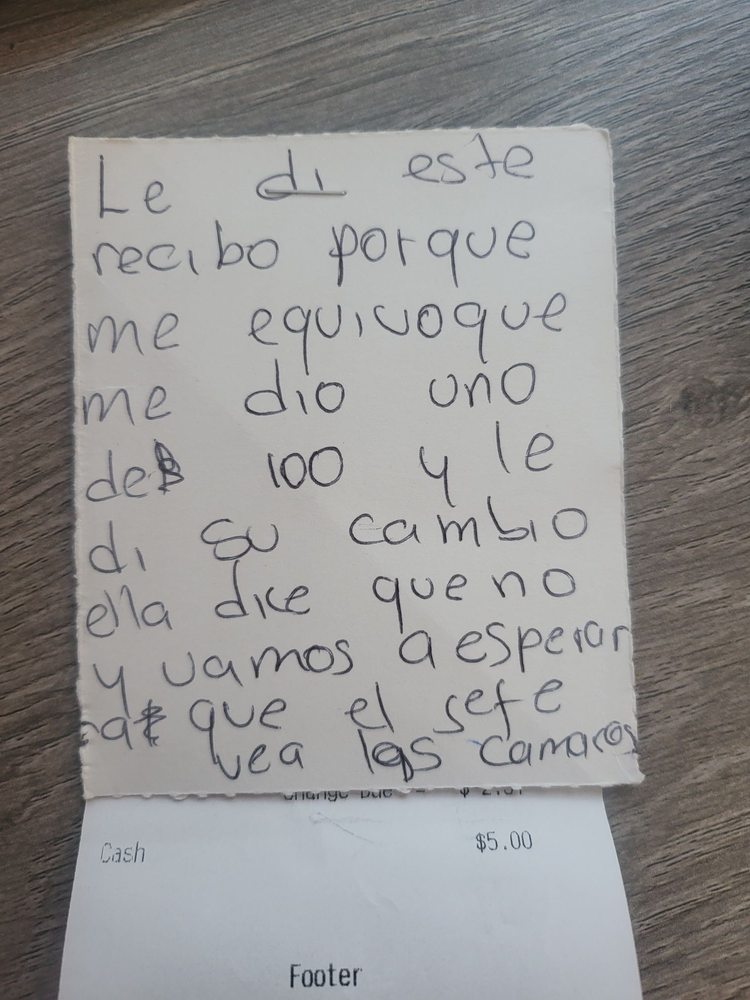 Le di este
recibo porque
me equivoque
me dio uno
de 100 y le
di su cambio
ella dice que no
y vamos a esperar
a que el sefe
vea las camaras
Change Due = $ 2.61
Cash $5.00
Footer